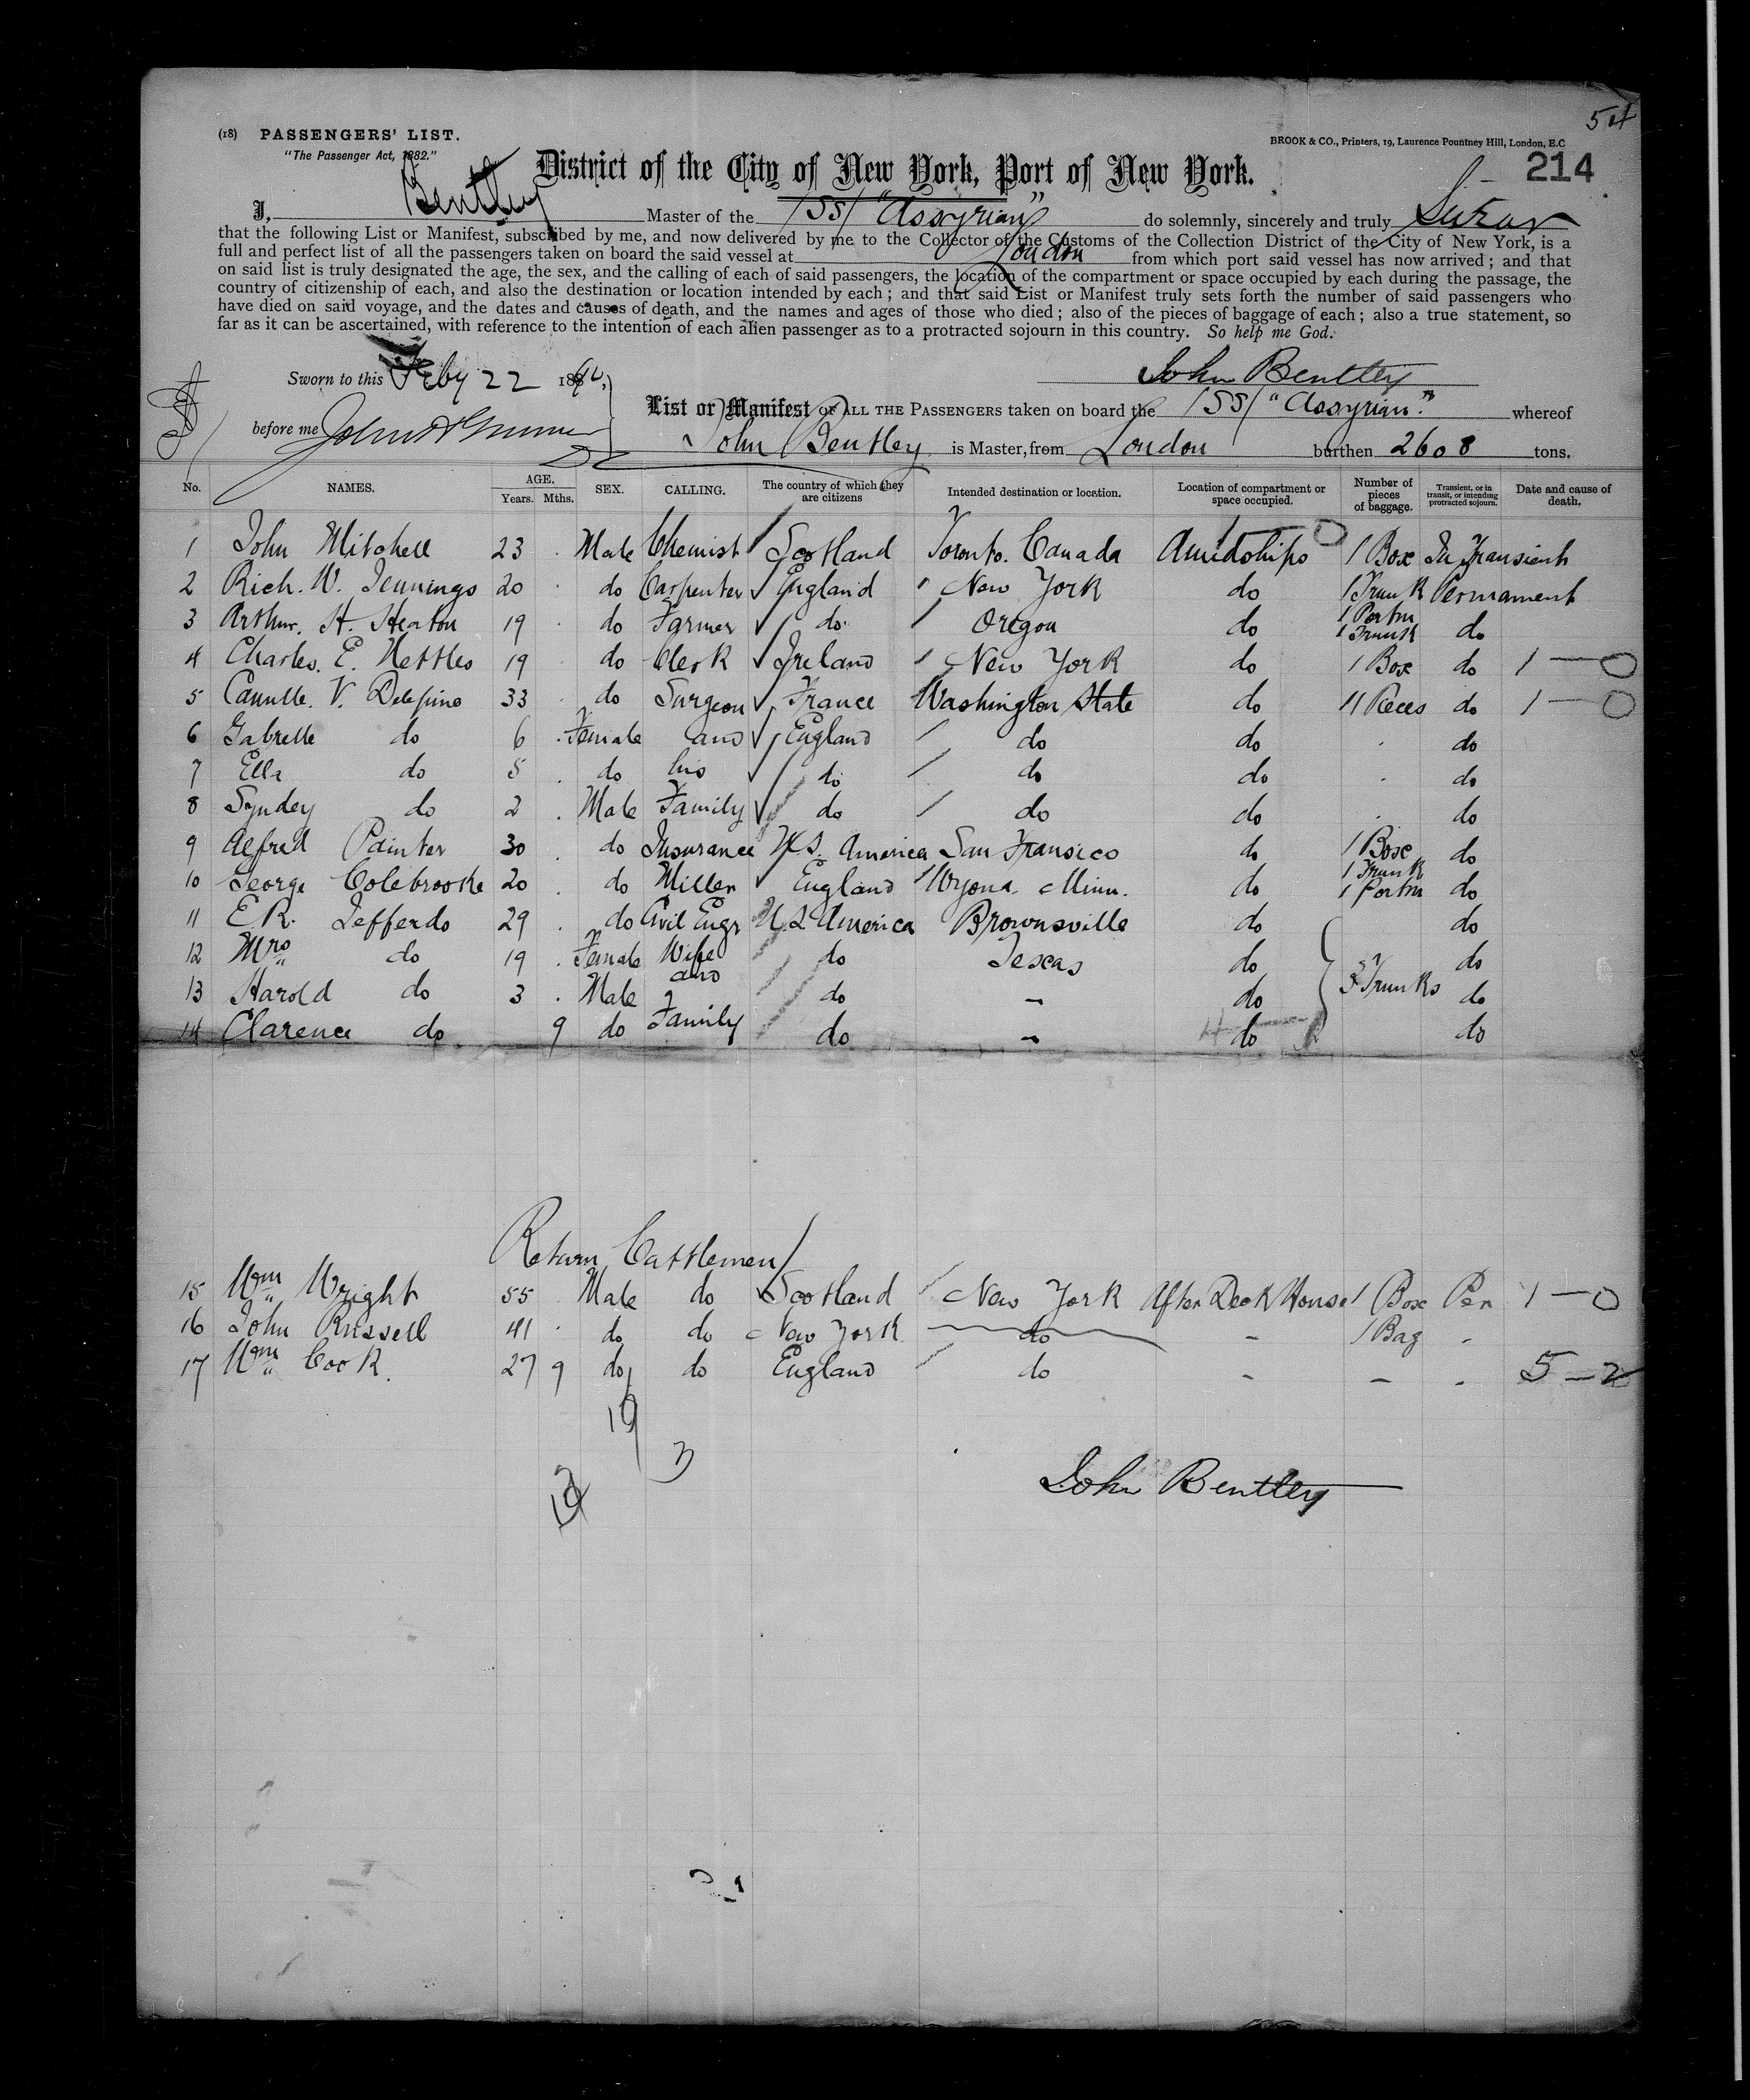 54
(18) PASSENGERS' LIST.
"The Passenger Act, 1882."
BROOK & CO., Printers, 19, Laurence Pountney Hill, London, E.C
214
District of the City of New York, Port of New York.
I, Bentley Master of the SS "Assyrian" do solemnly, sincerely and truly Swear
that the following List or Manifest, subscribed by me, and now delivered by me to the Collector of the Customs of the Collection District of the City of New York, is a
full and perfect list of all the passengers taken on board the said vessel at London from which port said vessel has now arrived; and that
on said list is truly designated the age, the sex, and the calling of each of said passengers, the location of the compartment or space occupied by each during the passage, the
country of citizenship of each, and also the destination or location intended by each; and that said List or Manifest truly sets forth the number of said passengers who
have died on said voyage, and the dates and causes of death, and the names and ages of those who died; also of the pieces of baggage of each; also a true statement, so
far as it can be ascertained, with reference to the intention of each alien passenger as to a protracted sojourn in this country. So help me God.
Sworn to this Feby 22 1890
John Bentley
before me
List or Manifest OF ALL THE PASSENGERS taken on board the SS "Assyrian" whereof
John Bentley is Master, from London burthen 2608 tons.
No. NAMES. AGE. Years. Mths. SEX. CALLING. The country of which they are citizens Intended destination or location. Location of compartment or space occupied. Number of pieces of baggage. Transient, or in transit, or intending protracted sojourn. Date and cause of death.
1 John Mitchell 23 Male Chemist Scotland Toronto. Canada Amidships 1 Box In Transient
2 Rich. W. Jennings 20 do Carpenter England New York do 1 Trunk Permament
3 Arthur. H. Heaton 19 do Farmer do Oregon do 1 Portm 1 Trunk do
4 Charles. E. Nettles 19 do Clerk Ireland New York do 1 Box do 1 — 0
5 Camille. V. Delepine 33 do Surgeon France Washington State do 11 Pieces do 1 — 0
6 Gabrelle do 6 Female and England do do do
7 Ella do 5 do his do do do do
8 Syndey do 2 Male Family do do do do
9 Alfred Painter 30 do Insurance U.S. America San Fransico do 1 Box do
10 George Colebrooke 20 do Miller England Wyona Minn. do 1 Trunk 1 Portm do
11 E. R. Jefferds 29 do Civil Engr U.S. America Brownsville do do
12 Mrs do 19 Female Wife and do Texas do do
13 Harold do 3 Male do " do 3 Trunks do
14 Clarence do 9 do Family do " do do
Return Cattlemen
15 Wm Wright 55 Male do Scotland New York After Deck House 1 Box Per 1 — 0
16 John Russell 41 do do New York do " 1 Bag "
17 Wm Cook 27 9 do do England do - - - 5 — 2
19
3
John Bentley